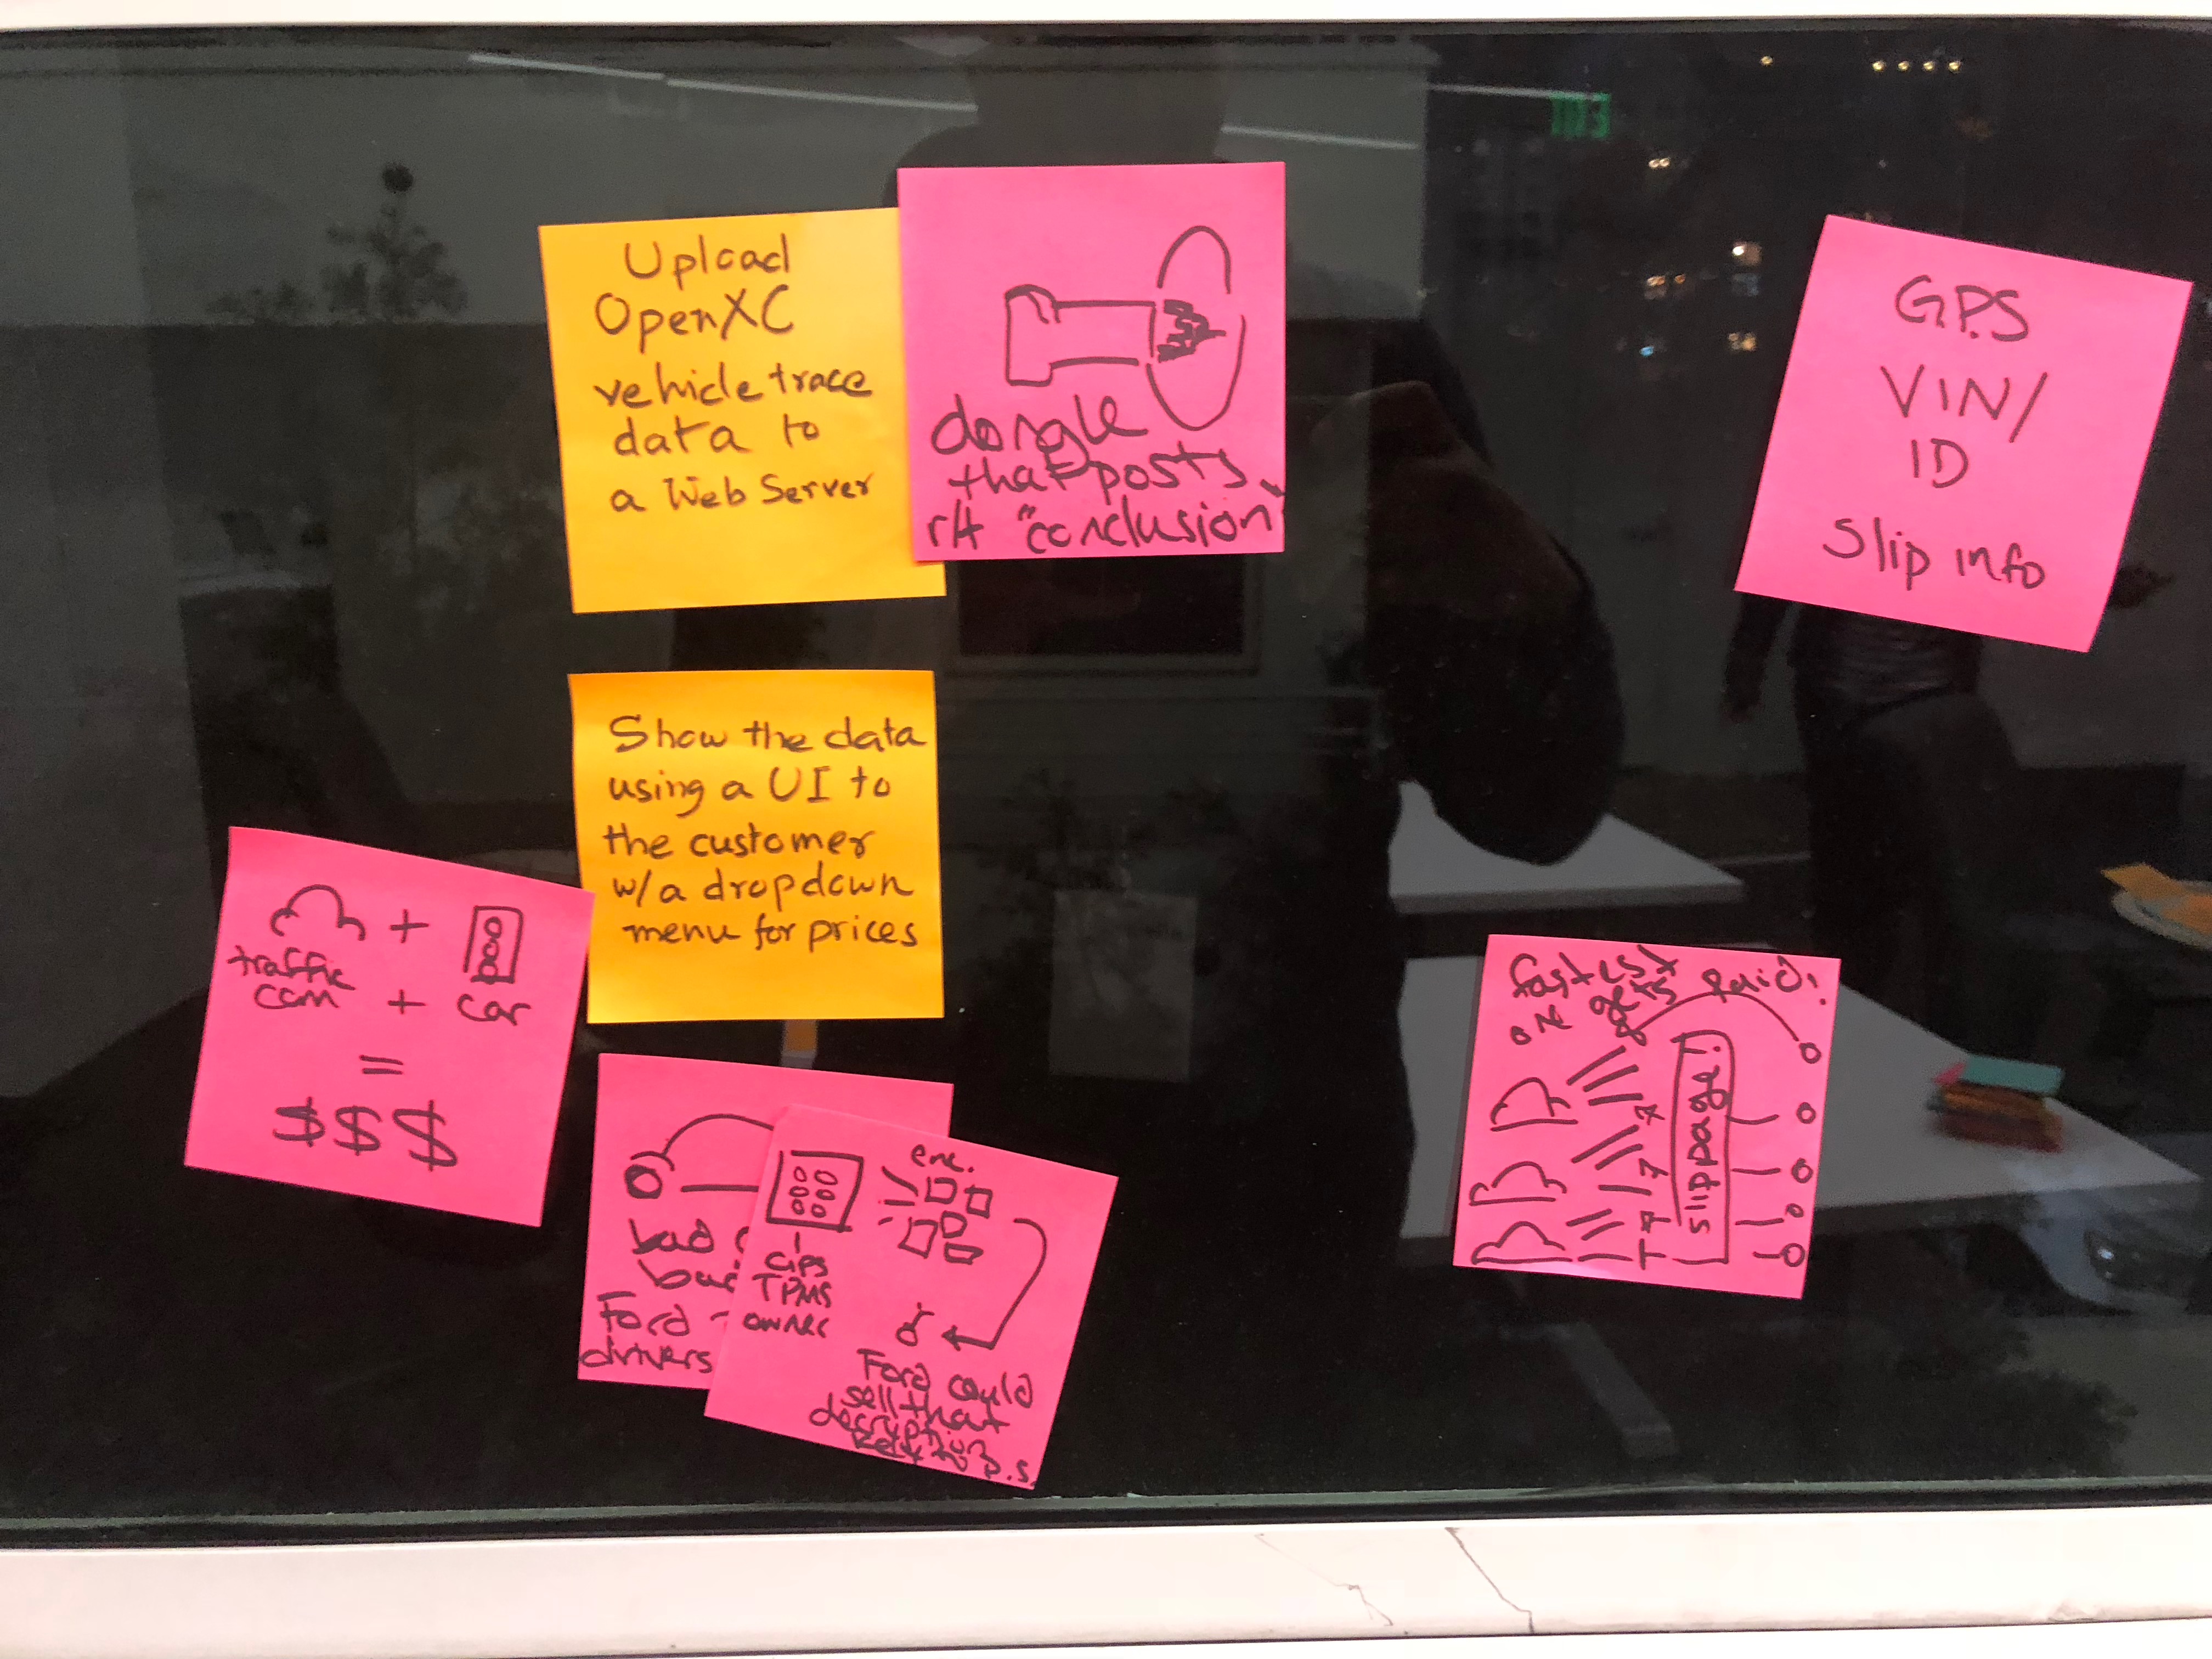 Upload
OpenXC
vehicle trace
data to
a Web Server
dongle
that posts
"conclusion"
GPS
VIN/
ID
Slip info
Show the data
using a UI to
the customer
w/a dropdown
menu for prices
+
traffic
cam + car
=
$$$
bad
Ford
drivers
enc.
GPS
TPMS
owner
Ford could
sell that
decryption
fastest
one gets paid!
slippage!